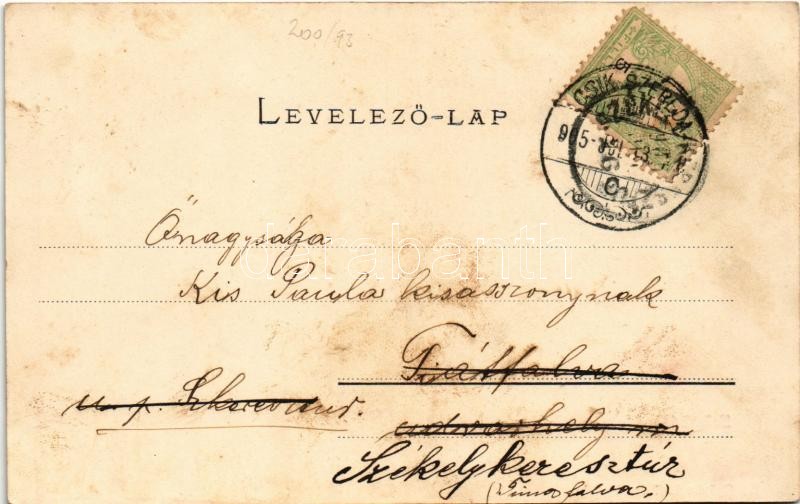 200/93
LEVELEZŐ-LAP
CSIK SZEREDA
905
Őnagysága
Kis Paula kisasszonynak
Fiátfalva
u. p.
udvarhely m
Székelykeresztúr
(Timosfalva.)
darabanth